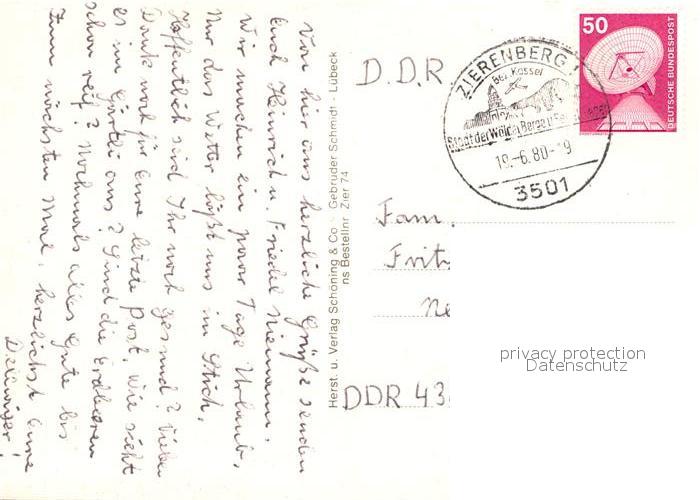 Von hier aus herzliche Grüße senden
Euch Heinrich u. Friedel Niemann.
Wir machen ein paar Tage Urlaub,
Nur das Wetter läßt uns im Stich.
Hoffentlich seid Ihr noch gesund? Vielen
Dank noch für Eure letzte Post. Wie sieht
es im Gärtli aus? Sind die Erdbeeren
schon reif? Nochmals alles Gute bis
zum nächsten Mal, herzlichst Eure
Herst. u. Verlag Schöning & Co · Gebrüder Schmidt · Lübeck
ns Bestellnr Zier 74
D.D.R
ZIERENBERG
Bez. Kassel
Stadt der Wälder, Berge u.
19.-6.80-19
3501
50
DEUTSCHE BUNDESPOST
Fam.
Fritz
Ne
DDR 43
privacy protection
Datenschutz